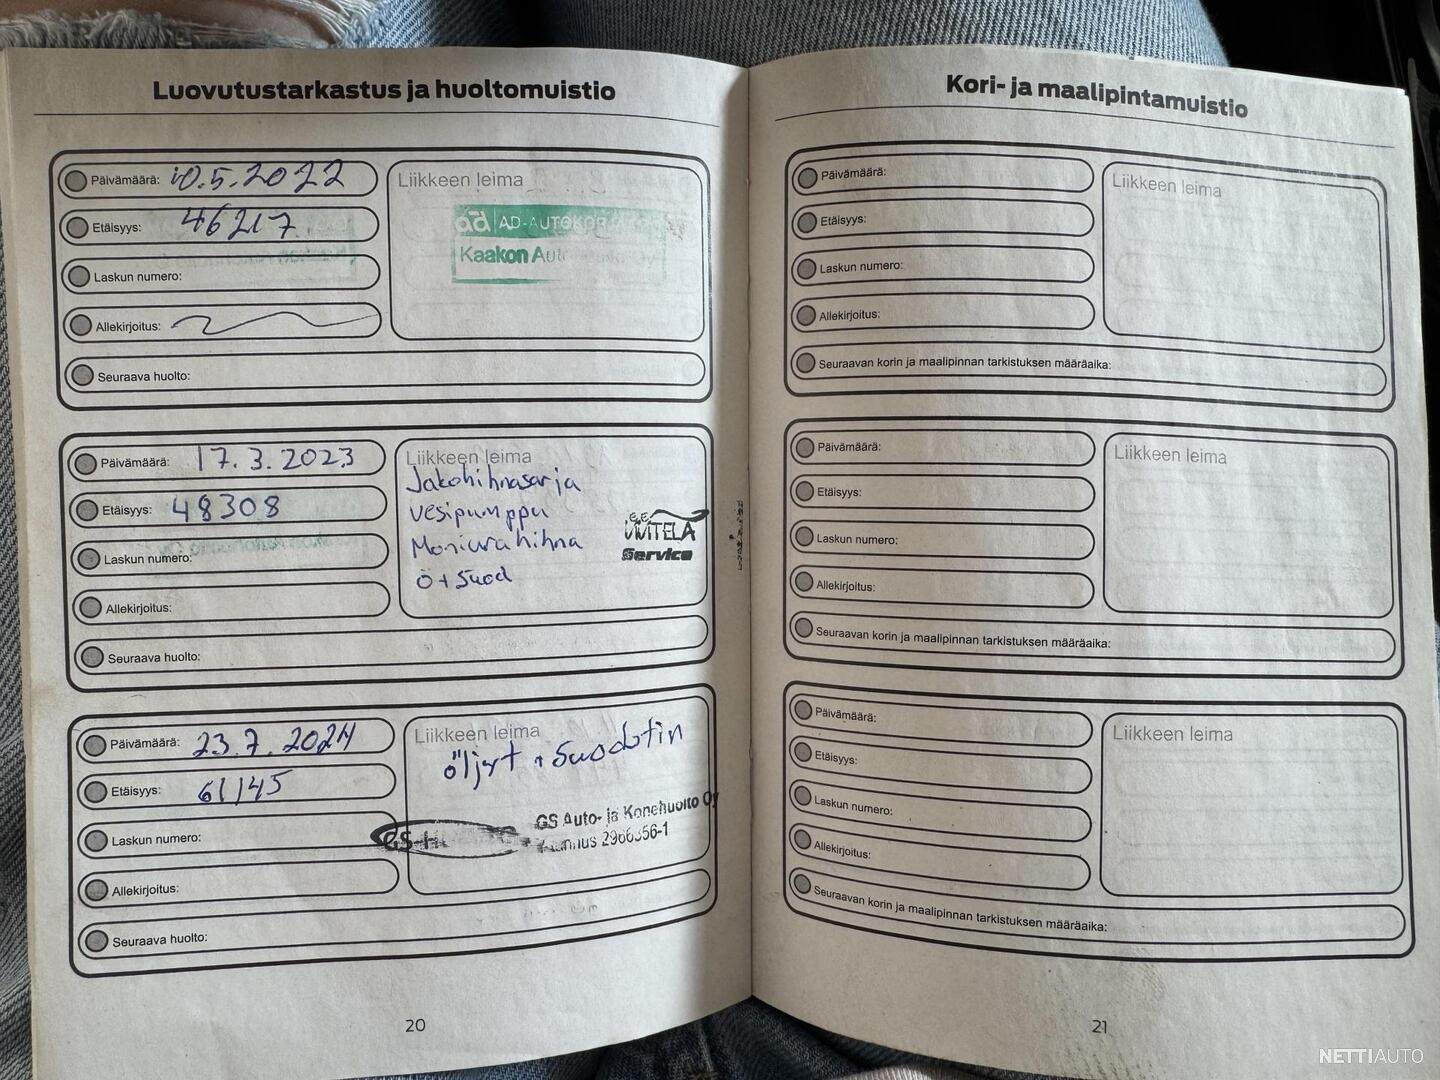 Luovutustarkastus ja huoltomuistio
Päivämäärä: 10.5.2022
Etäisyys: 46217
Laskun numero:
Allekirjoitus:
Seuraava huolto:
Liikkeen leima
ad AD-AUTOKOR
Kaakon Aut
Päivämäärä: 17.3.2023
Etäisyys: 48308
Laskun numero:
Allekirjoitus:
Seuraava huolto:
Liikkeen leima
Jakohihnasarja
vesipumppu
Moniurahihna
Ö+Suod
VIITELA
Service
Päivämäärä: 23.7.2024
Etäisyys: 61145
Laskun numero:
Allekirjoitus:
Seuraava huolto:
Liikkeen leima
öljyt + Suodatin
GS-H
GS Auto- ja Konehuolto Oy
20
Kori- ja maalipintamuistio
Päivämäärä:
Etäisyys:
Laskun numero:
Allekirjoitus:
Seuraavan korin ja maalipinnan tarkistuksen määräaika:
Liikkeen leima
Päivämäärä:
Etäisyys:
Laskun numero:
Allekirjoitus:
Seuraavan korin ja maalipinnan tarkistuksen määräaika:
Liikkeen leima
Päivämäärä:
Etäisyys:
Laskun numero:
Allekirjoitus:
Seuraavan korin ja maalipinnan tarkistuksen määräaika:
Liikkeen leima
21
NETTIAUTO